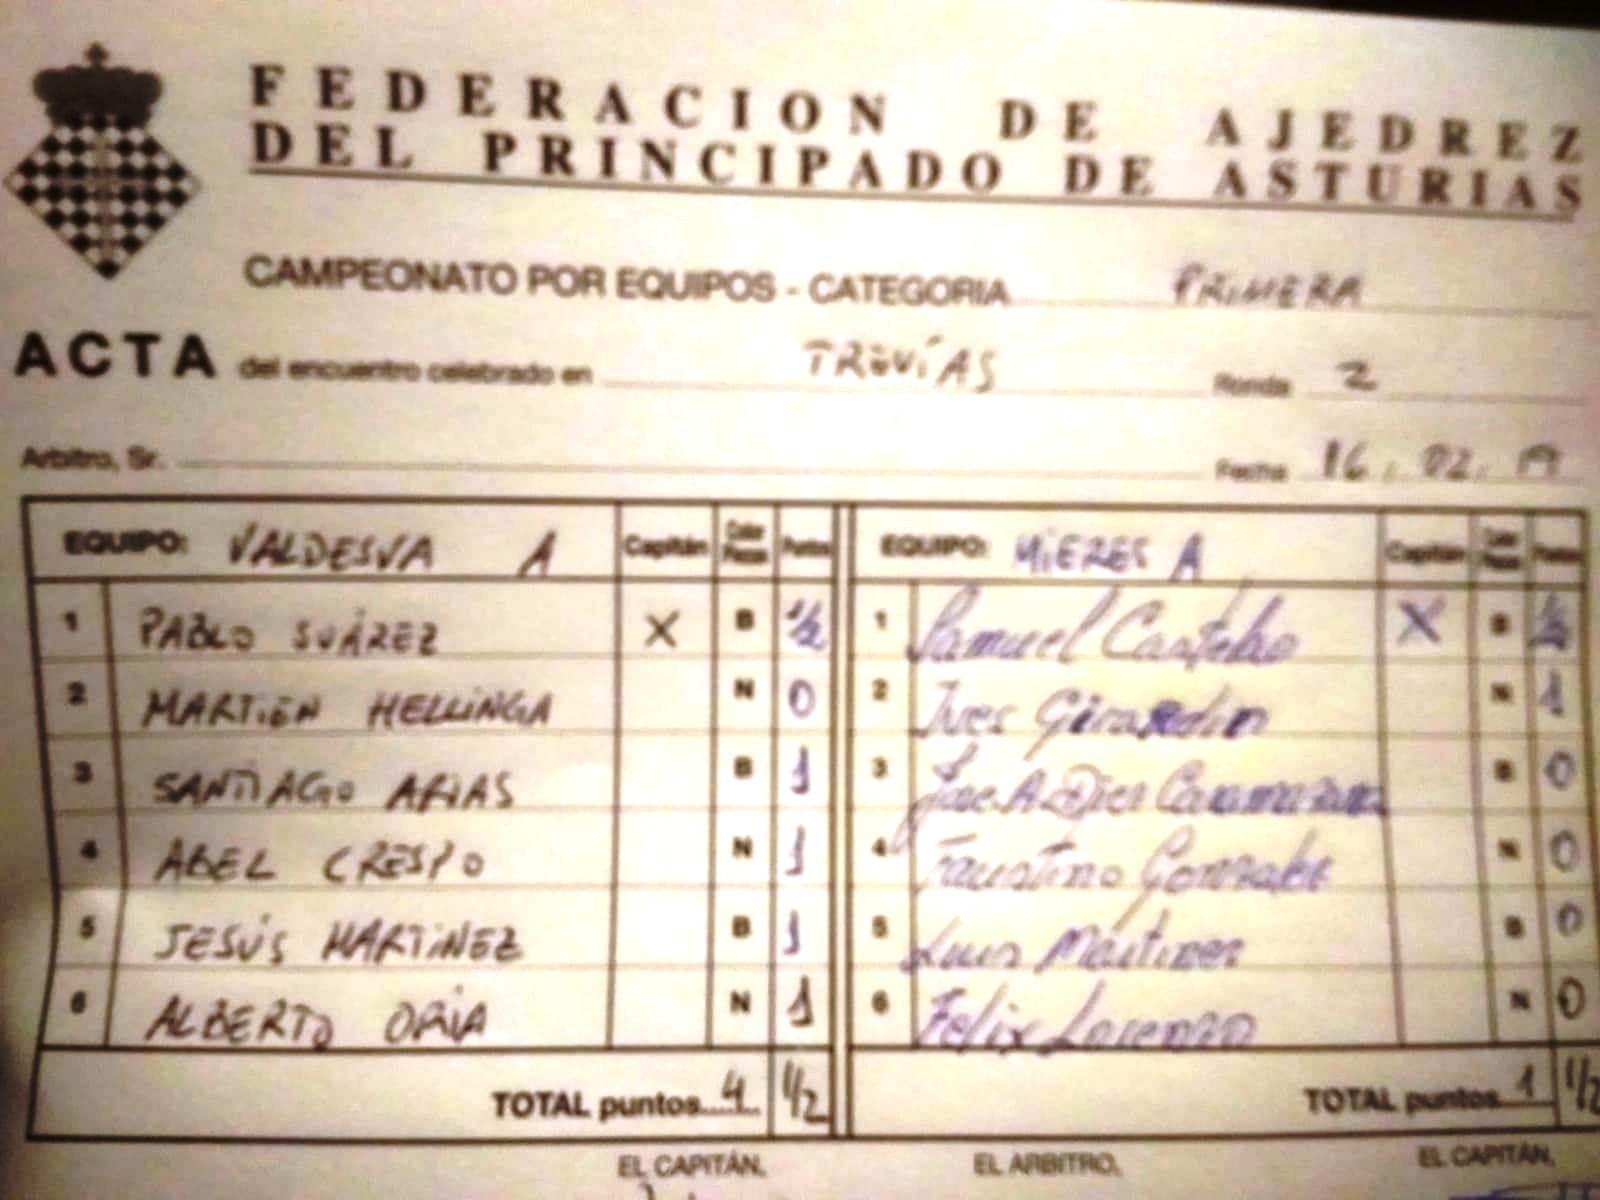 FEDERACION DE AJEDREZ
DEL PRINCIPADO DE ASTURIAS
CAMPEONATO POR EQUIPOS - CATEGORIA PRIMERA
ACTA del encuentro celebrado en TREVÍAS Ronda 2
Arbitro, Sr. Fecha 16.02.
EQUIPO: VALDESVA A Capitán Color Piezas Puntos EQUIPO: MIERES A Capitán Color Piezas Puntos
1 PABLO SUÁREZ X B 1/2 1 Samuel X B 1/2
2 MARTIEN HELLINGA N 0 2 Yves Girardin N 1
3 SANTIAGO ARIAS B 1 3 Jose A. Diez B 0
4 ABEL CRESPO N 1 4 Faustino Gonzalez N 0
5 JESÚS MARTINEZ B 1 5 Luis Martinez B 0
6 ALBERTO ORIA N 1 6 Felix Lorenzo N 0
TOTAL puntos 4 1/2 TOTAL puntos 1 1/2
EL CAPITÁN, EL ARBITRO, EL CAPITÁN,